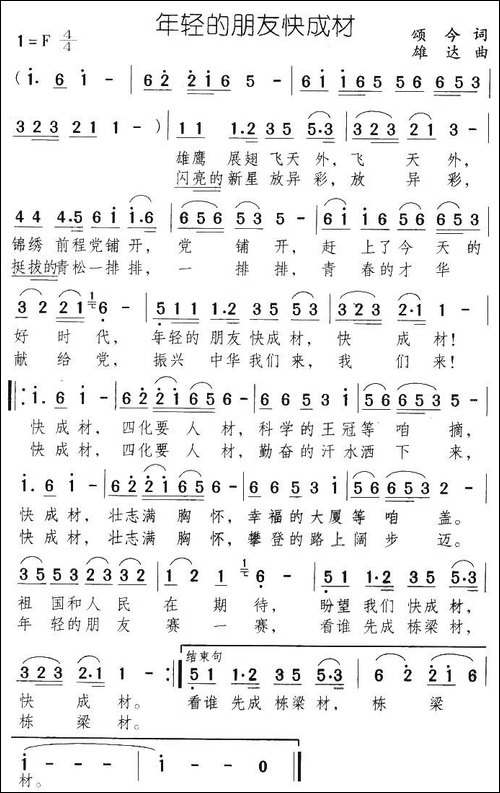 年轻的朋友快成材
1=F 4/4
颂今 词
雄达 曲
(i. 6 i - | 62 2i6 5 - | 6i i65 56 653 |
323 21 1 - ) | 11 1.2 35 5.3 | 323 21 3 - |
雄鹰 展翅 飞天 外, 飞 天 外,
闪亮的新星 放异 彩, 放 异 彩,
44 4.5 6i i.6 | 656 53 5 - | 6i i6 56 653 |
锦绣 前程党铺 开, 党 铺 开, 赶 上了 今 天 的
挺拔的青松一排排, 一 排 排, 青 春的 才 华
3 2 221 6 - | 511 1.2 35 5.3 | 323 2.1 1 - |
好 时 代, 年轻的 朋友 快成 材, 快 成 材!
献 给 党, 振兴 中华我们 来, 我 们 来!
‖: i. 6 i - | 622 216 5 - | 66 653 5 i | 56 653 5 - |
快 成 材, 四化要 人 材, 科学的王冠等 咱 摘,
快 成 材, 四化要 人 材, 勤奋的汗水洒 下 来,
i. 6 i - | 622 1656 - | 55 653 1 | 56653 2 - |
快 成 材, 壮志满 胸 怀, 幸福的大厦等 咱 盖。
快 成 材, 壮志满 胸 怀, 攀登的路上阔 步 迈。
35532332 | 1 2 1 6 - | 51 1.2 35 5.3 |
祖 国和人 民 在 期 待, 盼望 我们 快成 材,
年 轻的朋 友 赛 一 赛, 看谁 先成 栋梁 材,
结束句
323 2.1 1 - :‖ 51 1.2 35 5.3 | 6 2 2i6 |
快 成 材。 看谁 先成 栋梁 材, 栋 梁
栋 梁 材。
i - - - | i - i 0 ‖
材。